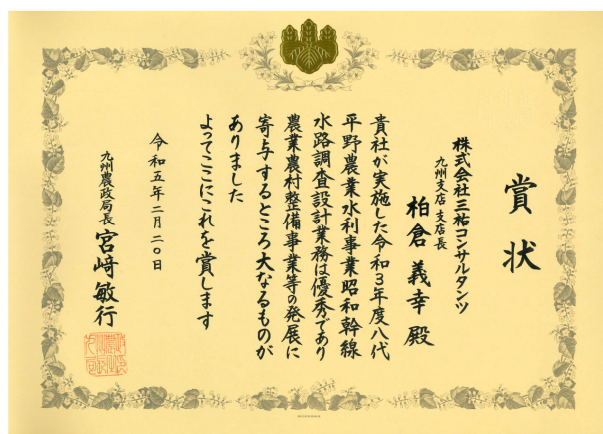 賞状
株式会社三祐コンサルタンツ
九州支店 支店長
柏倉義幸 殿
貴社が実施した令和3年度八代
平野農業水利事業昭和幹線
水路調査設計業務は優秀であり
農業農村整備事業等の発展に
寄与するところ大なるものが
ありました
よってここにこれを賞します
令和五年二月二〇日
九州農政局長 宮﨑敏行